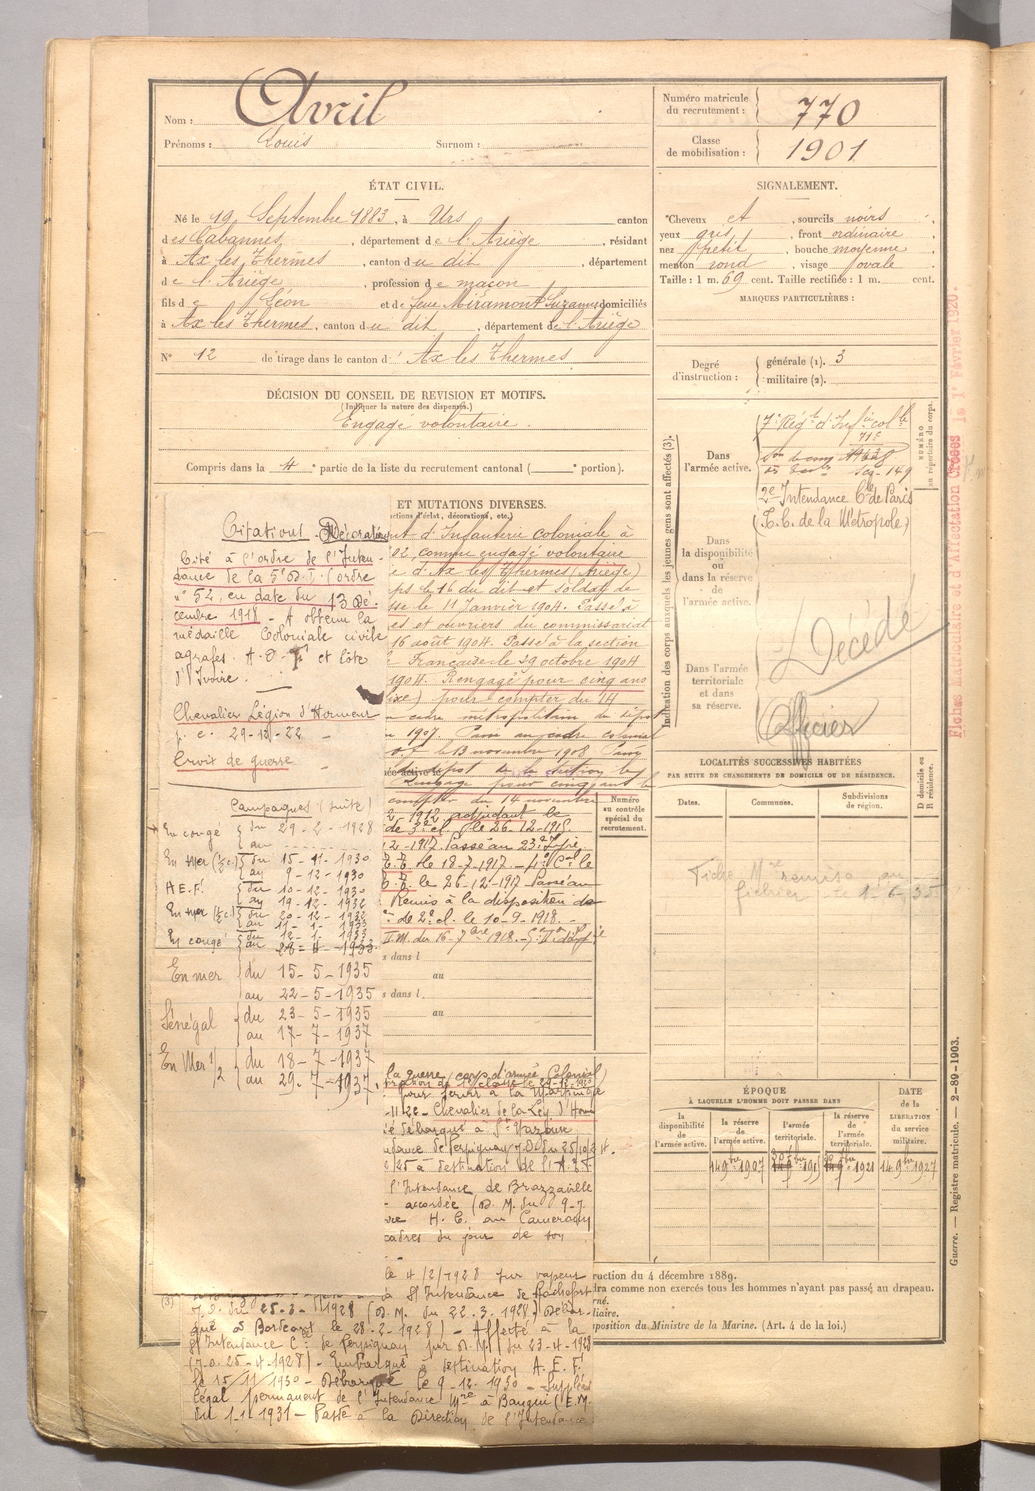 Nom : Avril
Prénoms : Louis Surnom :
Numéro matricule du recrutement : 770
Classe de mobilisation : 1901
ÉTAT CIVIL.
Né le 19 Septembre 1883, à Urs canton
des Cabannes, département de l'Ariège, résidant
à Ax les Thermes, canton du dit, département
de l'Ariège, profession de maçon
fils de Léon et de feue Miramont Suzanne domiciliés
à Ax les Thermes, canton du dit, département de l'Ariège
N° 12 de tirage dans le canton d' Ax les Thermes
DÉCISION DU CONSEIL DE REVISION ET MOTIFS.
(Indiquer la nature des dispenses.)
Engagé volontaire.
Compris dans la 4e partie de la liste du recrutement cantonal ( e portion).
SIGNALEMENT.
Cheveux et, sourcils noirs
yeux gris, front ordinaire
nez petit, bouche moyenne
menton rond, visage ovale
Taille : 1 m. 69 cent. Taille rectifiée : 1 m. cent.
MARQUES PARTICULIÈRES :
Degré d'instruction : générale (1). 3
militaire (2).
Indication des corps auxquels les jeunes gens sont affectés (3).
NUMÉRO au répertoire du corps.
Dans l'armée active.
7e Régt d'Infie colle
2e Intendance Cle de Paris
(T. C. de la Métropole)
Dans la disponibilité ou dans la réserve de l'armée active.
Décédé
Dans l'armée territoriale et dans sa réserve.
Officier
Fiches Matriculaire et d'Affectation Créées le 1er Février 1920.
ET MUTATIONS DIVERSES.
d'Infanterie coloniale à
02, comme engagé volontaire
d'Ax les Thermes (Ariège)
le 16 du dit et soldat de
le 11 Janvier 1904. Passé à
es et ouvriers du commissariat
16 août 1904. Passé à la section
Française le 29 octobre 1904
1904. Rengagé pour cinq ans
pour compter du 14
cadre métropolitain du dépôt
1907. Passé au cadre colonial
le 13 novembre 1908. Passé
dépôt de la section le
Rengagé pour cinq ans le
compter du 14 novembre
1912 adjudant le
de 3e cl. le 26-12-1915.
2-1917. Passé au 23e
le 18-7-1917.
le 26-12-1917 Passé au
Remis à la disposition de
de 2e cl. le 10-9-1918.
s dans l
au
s dans l
au
la guerre (corps d'armée Colonial)
pour servir à la Martinique
Chevalier de la Lég. d'Hon
débarqué à St Nazaire
de Perpignan
à destination de l'A.E.F.
l'Intendance de Brazzaville
accordée (D. M. du 9-7
H. C. au Cameroun
cadres du jour de son
le 4/2/1928 sur vapeur
à St Intendance de Rochefort
J. O. du 25-3-1928 (D. M. du 22.3.1928) Débar-
qué à Bordeaux le 28-2-1928) - Affecté à la
St Intendance C. de Perpignan par D. M. du 23-4-1928
(J.O. 25-4-1928) - Embarqué à destination A. E. F.
le 15/11/1930 - Débarqué le 9-12-1930 - Suppléant
légal permanent de l'Intendance Mre à Bangui (E.M.
du 1-1-1931 - Passé à la Direction de l'Intendance
Citations - Décorations
Cité à l'ordre de l'Inten-
dance de la 5e D. I. (ordre
n° 52, en date du 13 Dé-
cembre 1918 - A obtenu la
médaille Coloniale civile
agrafes. A.O.F. et Côte
d'Ivoire.
Chevalier Légion d'Honneur
p. c. 29-12-22
Croix de guerre
Campagnes (suite)
En congé { du 29-2-1928
au
En mer (½ c.) { du 15-11-1930
au 9-12-1930
A.E.F. { du 10-12-1930
au 19-12-1932
En mer (½ c.) { du 20-12-1932
au 11-1-1933
En congé { du 12-1-1933
au 28-4-1933
En mer { du 15-5-1935
au 22-5-1935
Sénégal { du 23-5-1935
au 17-7-1937
En Mer ½ { du 18-7-1937
au 29-7-1937
Numéro au contrôle spécial du recrutement.
LOCALITÉS SUCCESSIVES HABITÉES
PAR SUITE DE CHANGEMENTS DE DOMICILE OU DE RÉSIDENCE.
Dates. Communes. Subdivisions de région. D domicile ou R résidence.
Fiche Mle remise au
fichier le 1-6-35
ÉPOQUE
À LAQUELLE L'HOMME DOIT PASSER DANS
la disponibilité de l'armée active.
la réserve de l'armée active.
l'armée territoriale.
la réserve de l'armée territoriale.
DATE de la LIBÉRATION du service militaire.
14 9bre 1907
14 9bre 1927
ruction du 4 décembre 1889.
dra comme non exercés tous les hommes n'ayant pas passé au drapeau.
rné.
iliaire.
position du Ministre de la Marine. (Art. 4 de la loi.)
Guerre. — Registre matricule. — 2-89-1903.